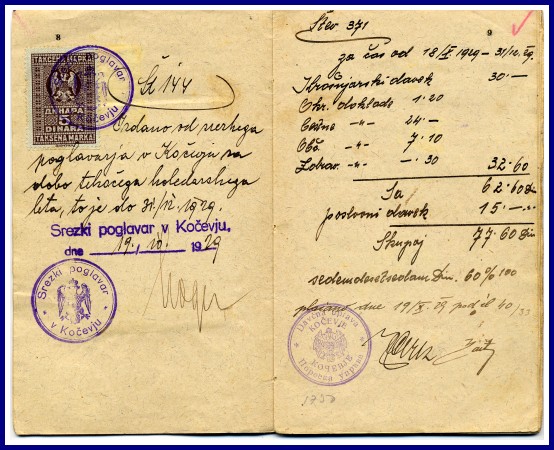 8
ТАКСЕНА МАРКА
ДИНАРА
5
DINARA
TAKSENA MARKA
Srezki poglavar
v Kočevju
Št 144
Izdano od srezkega
poglavarja v Kočevju za
dobo tekočega koledarskega
leta, to je do 31/12. 1929.
Srezki poglavar v Kočevju,
dne 19. 10. 1929
Srezki poglavar
v Kočevju
9
Štev 371
za čas od 18/X 1929 - 31/12. 29.
davek 30.—
Okr. doklade 1.20
Cestne -"- 24.—
Obč. -"- 7.10
Zdrav. -"- —.30 32.60
Sa 62.60 Din
poslovni davek 15.—
Skupaj 77.60 Din
sedemdesetsedem Din. 60 % 100
plačano dne 19/X. 29 pod čl 40/33
КОЧЕВЈЕ
KOČEVJE
1750